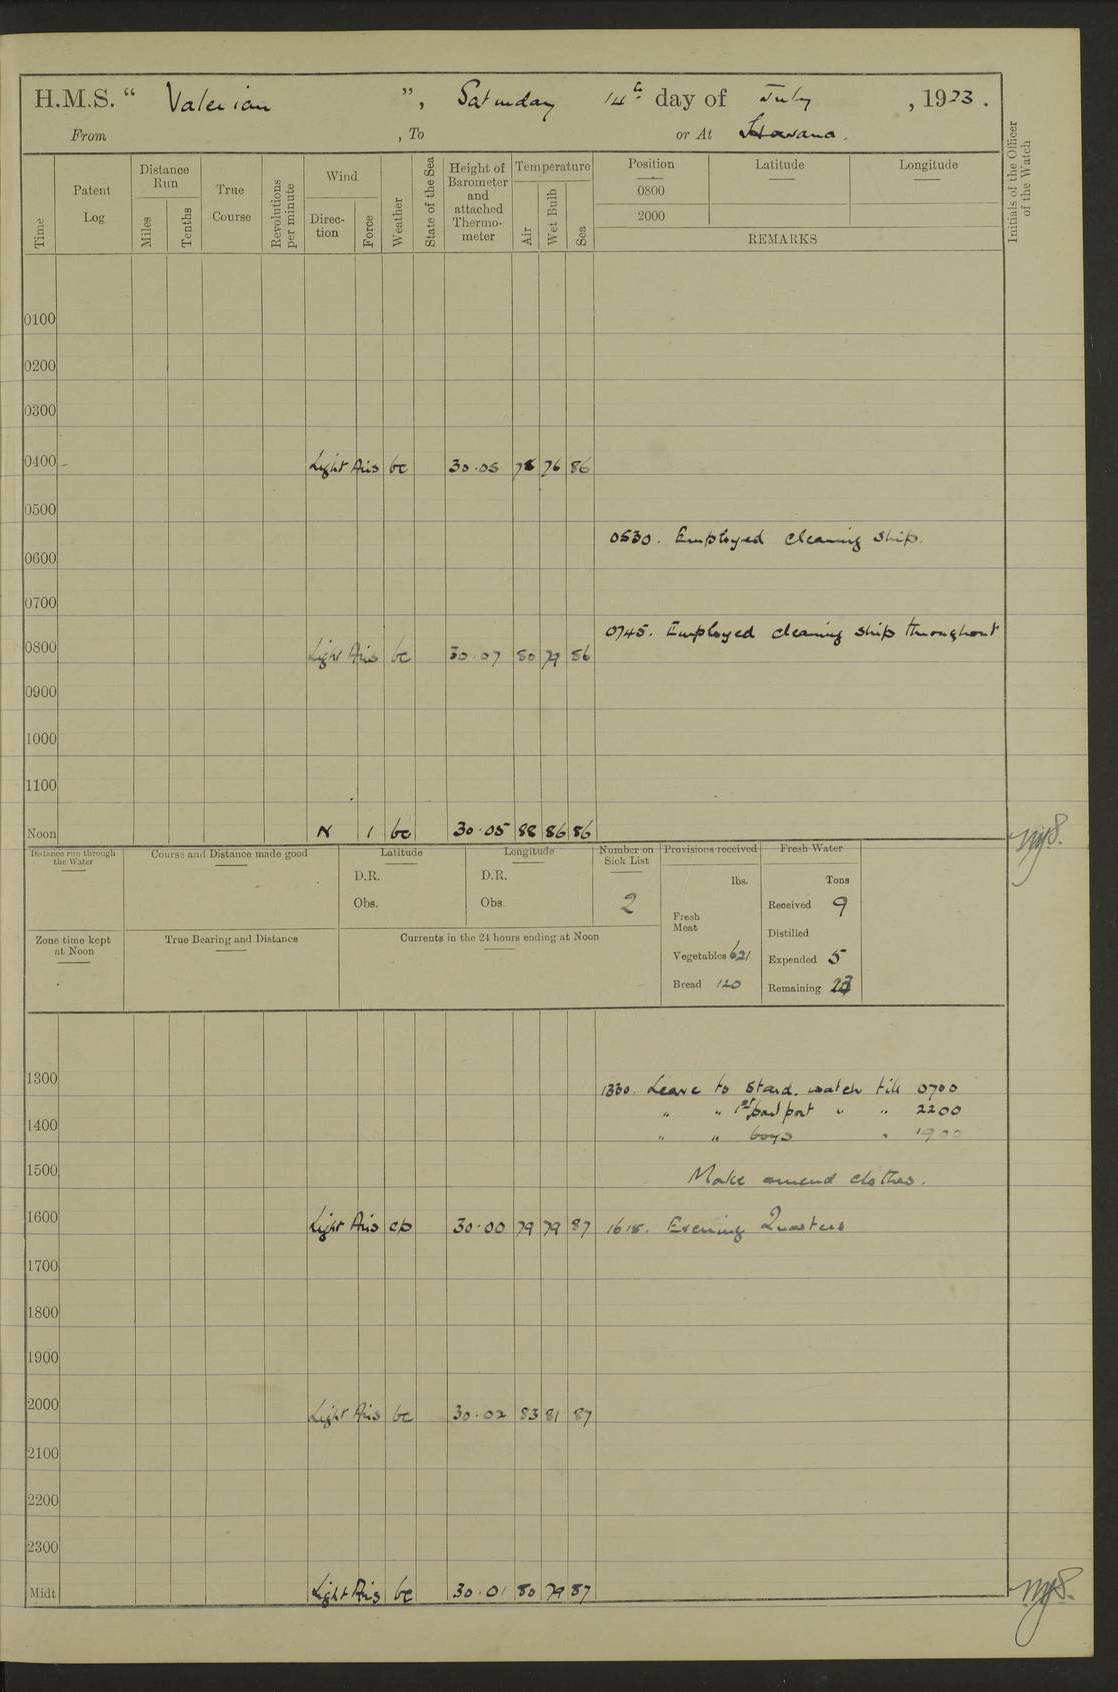 H.M.S. “ Valerian ”, Saturday 14th day of July , 1923 .
From , To or At Havana .
Time
Patent Log
Distance Run
Miles
Tenths
True Course
Revolutions per minute
Wind
Direc- tion
Force
Weather
State of the Sea
Height of Barometer and attached Thermo- meter
Temperature
Air
Wet Bulb
Sea
Position
Latitude
Longitude
0800
2000
REMARKS
Initials of the Officer of the Watch
0100
0200
0300
0400 Light Airs bc 30.05 78 76 86
0500
0530. Employed cleaning ship.
0600
0700
0745. Employed cleaning ship throughout
0800 Light Airs bc 30.07 80 79 86
0900
1000
1100
Noon N 1 bc 30.05 88 86 86
Distance run through the Water
Course and Distance made good
Latitude
D.R.
Obs.
Longitude
D.R.
Obs.
Number on Sick List
2
Provisions received
lbs.
Fresh Meat
Vegetables 621
Bread 120
Fresh Water
Tons
Received 9
Distilled
Expended 5
Remaining
Zone time kept at Noon
True Bearing and Distance
Currents in the 24 hours ending at Noon
1300
1330. Leave to Starb. watch till 0700
" " 1st part port " " 2200
1400
" " boys " 1900
1500
Make amend clothes.
1600 Light Airs cp 30.00 79 79 87 1615. Evening Quarters
1700
1800
1900
2000 Light Airs bc 30.02 83 81 87
2100
2200
2300
Midt. Light Airs bc 30.01 80 79 87